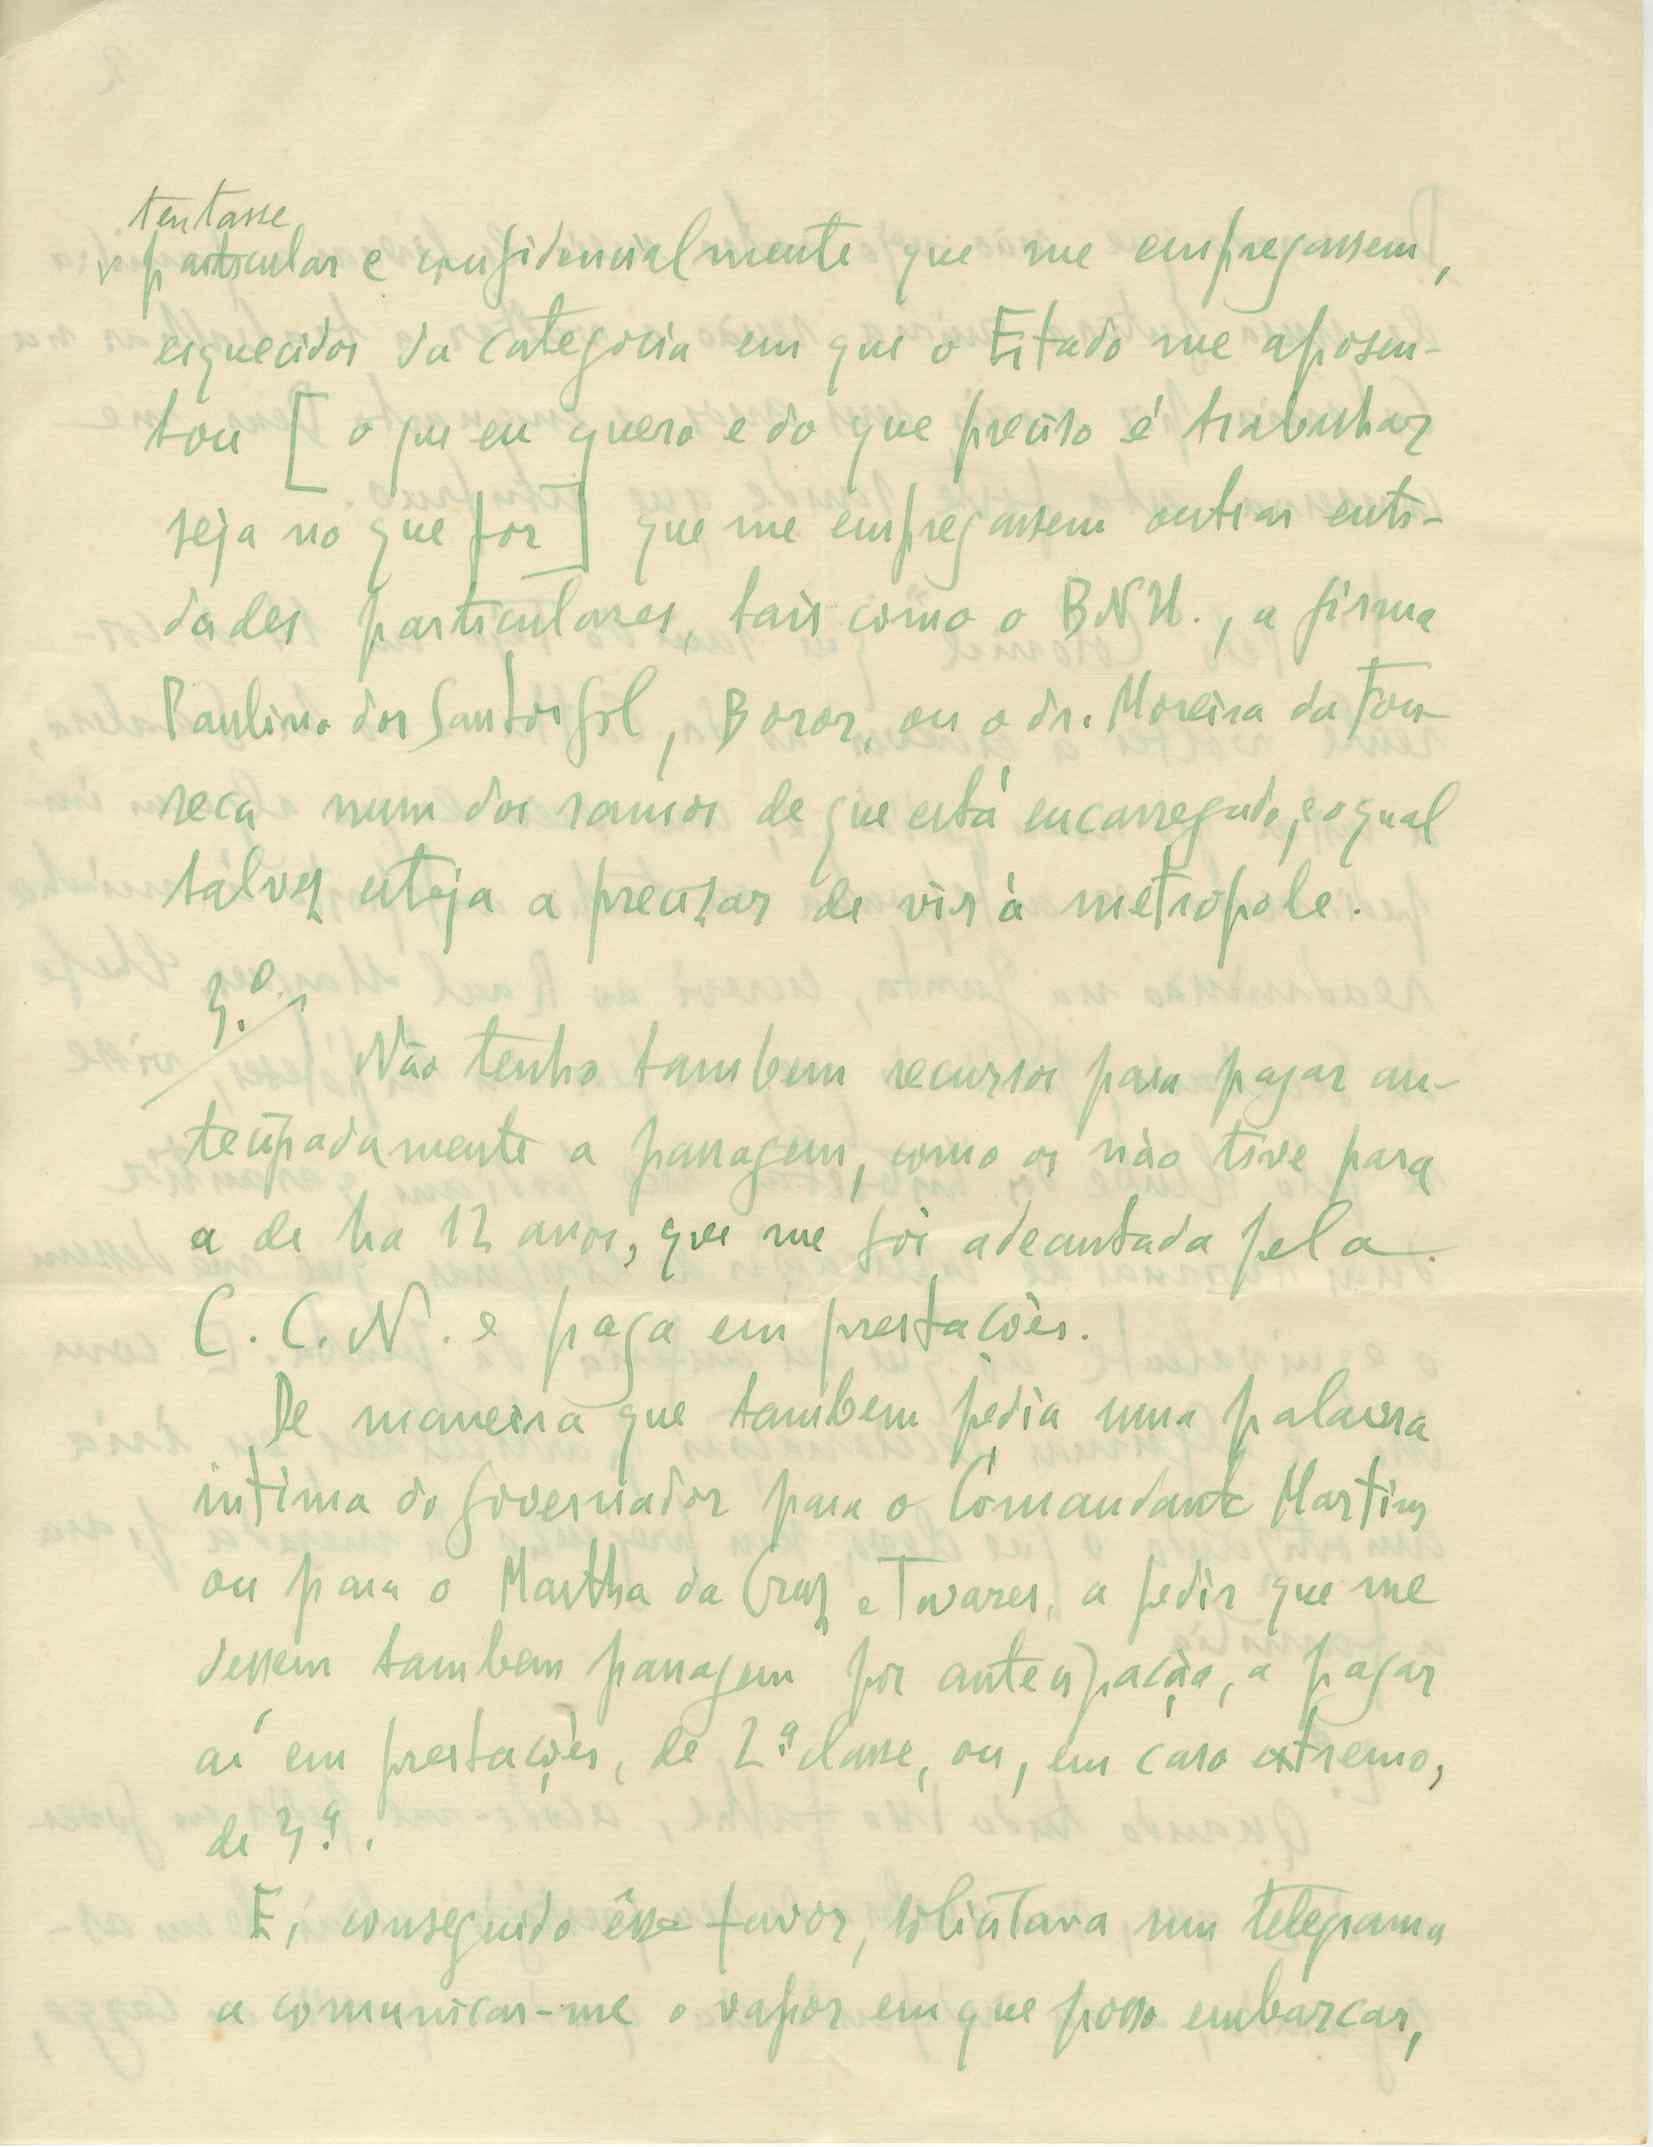 tentasse
v particular e confidencialmente que me empregassem,
esquecidos da categoria em que o Estado me aposen-
tou [ o que eu quero e do que preciso é trabalhar
seja no que for ] que me empregassem outras enti-
dades particulares, tais como o BNU., a firma
Paulino dos Santos Gil, Boror, ou o dr. Moreira da Fon-
seca num dos ramos de que está encarregado, e o qual
talvez esteja a precisar de vir à metropole.
3.º
Não tenho tambem recursos para pagar an-
tecipadamente a passagem, como os não tive para
a de ha 12 anos, que me foi adeantada pela
C. C. N. e paga em prestações.
De maneira que tambem pedia uma palavra
intima do Governador para o Comandante Martins
ou para o Martha da Cruz e Tavares, a pedir que me
dessem tambem passagem por antecipação, a pagar
aí em prestações, de 2.ª classe, ou, em caso extremo,
de 3.ª.
E, conseguido êsse favor, solicitava um telegrama
a comunicar-me o vapor em que posso embarcar,